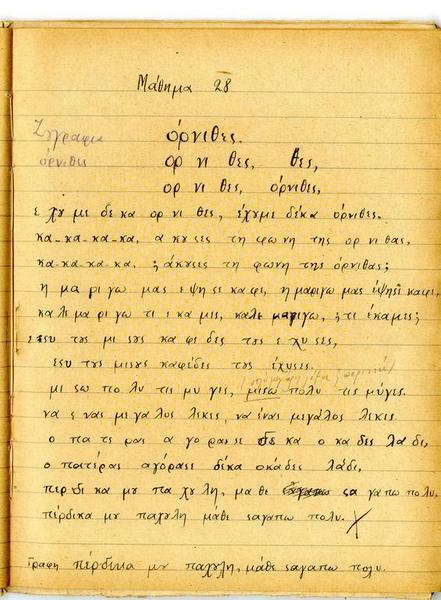 Μάθημα 28
Ζωγραφια όρνιθες.
όρνιθες ορ νι θες, θες,
ορ νι θες, όρνιθες,
ε χυ με δε κα ορ νι θες, έχυμε δέκα όρνιθες.
κα-κα-κα-κα, α κυ σες τη φω νη της ορ νι θας,
κα-κα-κα κα, ; άκυσες τη φωνη της όρνιθας;
η μα ρι γω μας ε ψη σε κα φε, η μαριγω μας έψησε καφε,
κα λε μα ρι γω τι ε κα μες, καλε μαριγω, ; τι έκαμες;
εσυ τυς μι συς κα φε δες τυς ε χυ σες
εσυ τυς μισυς καφέδες τυς έχυσες.
μι σω πο λυ τις μυ γες, μισω πολυ τις μύγες.
να ε νας με γα λυς λε κες, να ένας μεγάλος λεκες
ο πα τε ρας α γο ρα σε δε κα ο κα δες λα δι,
ο πατέρας αγόρασε δέκα οκάδες λάδι,
πέρ δι κα μυ πα χυ λη, μα θε σα γαπω πολυ,
πέρδικα μυ παχυλη μάθε σαγαπω πολυ.
Γραφη πέρδικα μυ παχυλη, μάθε σαγαπω πολυ.